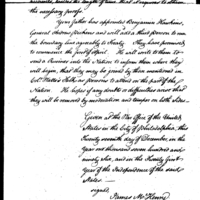 the necessary proofs.
Your father has appointed Benjamin Hawkins,
General Andrew Pickens and will add a third person to run
the boundary line agreeably to treaty. They have promised
to commence the first of April. He will write to them to
send a Runner into the Nation to inform them where they
will begin, that they may be joined by those mentioned on
the part of the
Nation. He hopes if any doubts or difficulties arise that
they will be removed by moderation and temper on both sides.
Given at the War Office of the United
States in the City of Philadelphia, this
twenty seventh day of December, in the
year one thousand seven hundred and
ninety six, and in the twenty first
year of the Independence of the said
States.
signed,
James McHenry